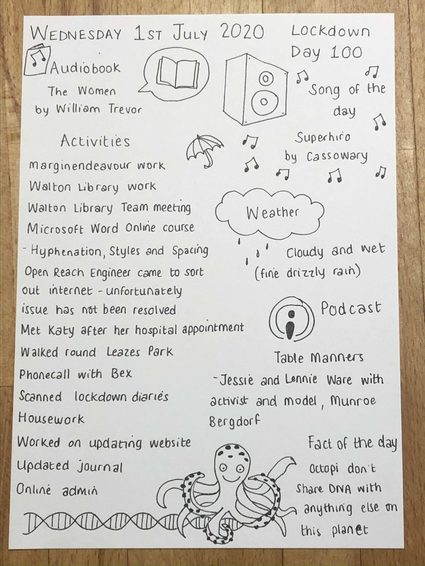 WEDNESDAY 1ST JULY 2020
LOCKDOWN
DAY 100
Audiobook
The Women
by William Trevor
Song of the
day
Superhiro
by Cassowary
Activities
marginendeavour work
Walton Library work
Walton Library Team meeting
Microsoft Word Online course
- Hyphenation, Styles and Spacing
Open Reach Engineer came to sort
out internet - unfortunately
issue has not been resolved
Met Katy after her hospital appointment
Walked round Leazes Park
Phonecall with Bex
Scanned lockdown diaries
Housework
Worked on updating website
Updated journal
Online admin
Weather
Cloudy and wet
(fine drizzly rain)
Podcast
Table Manners
- Jessie and Lennie Ware with
activist and model, Munroe
Bergdorf
Fact of the day
Octopi don't
share DNA with
anything else on
this planet